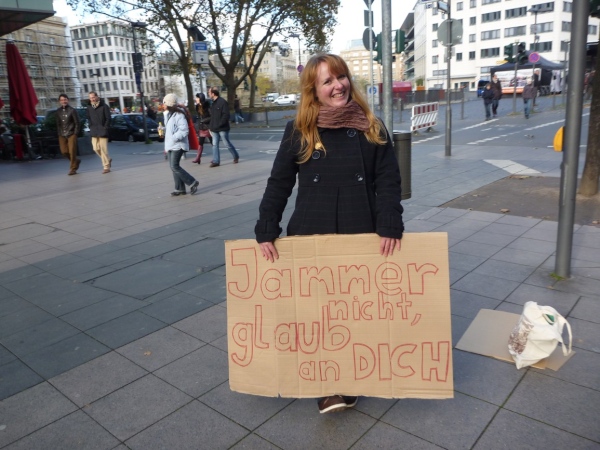 Jammer
nicht,
glaub
an DICH